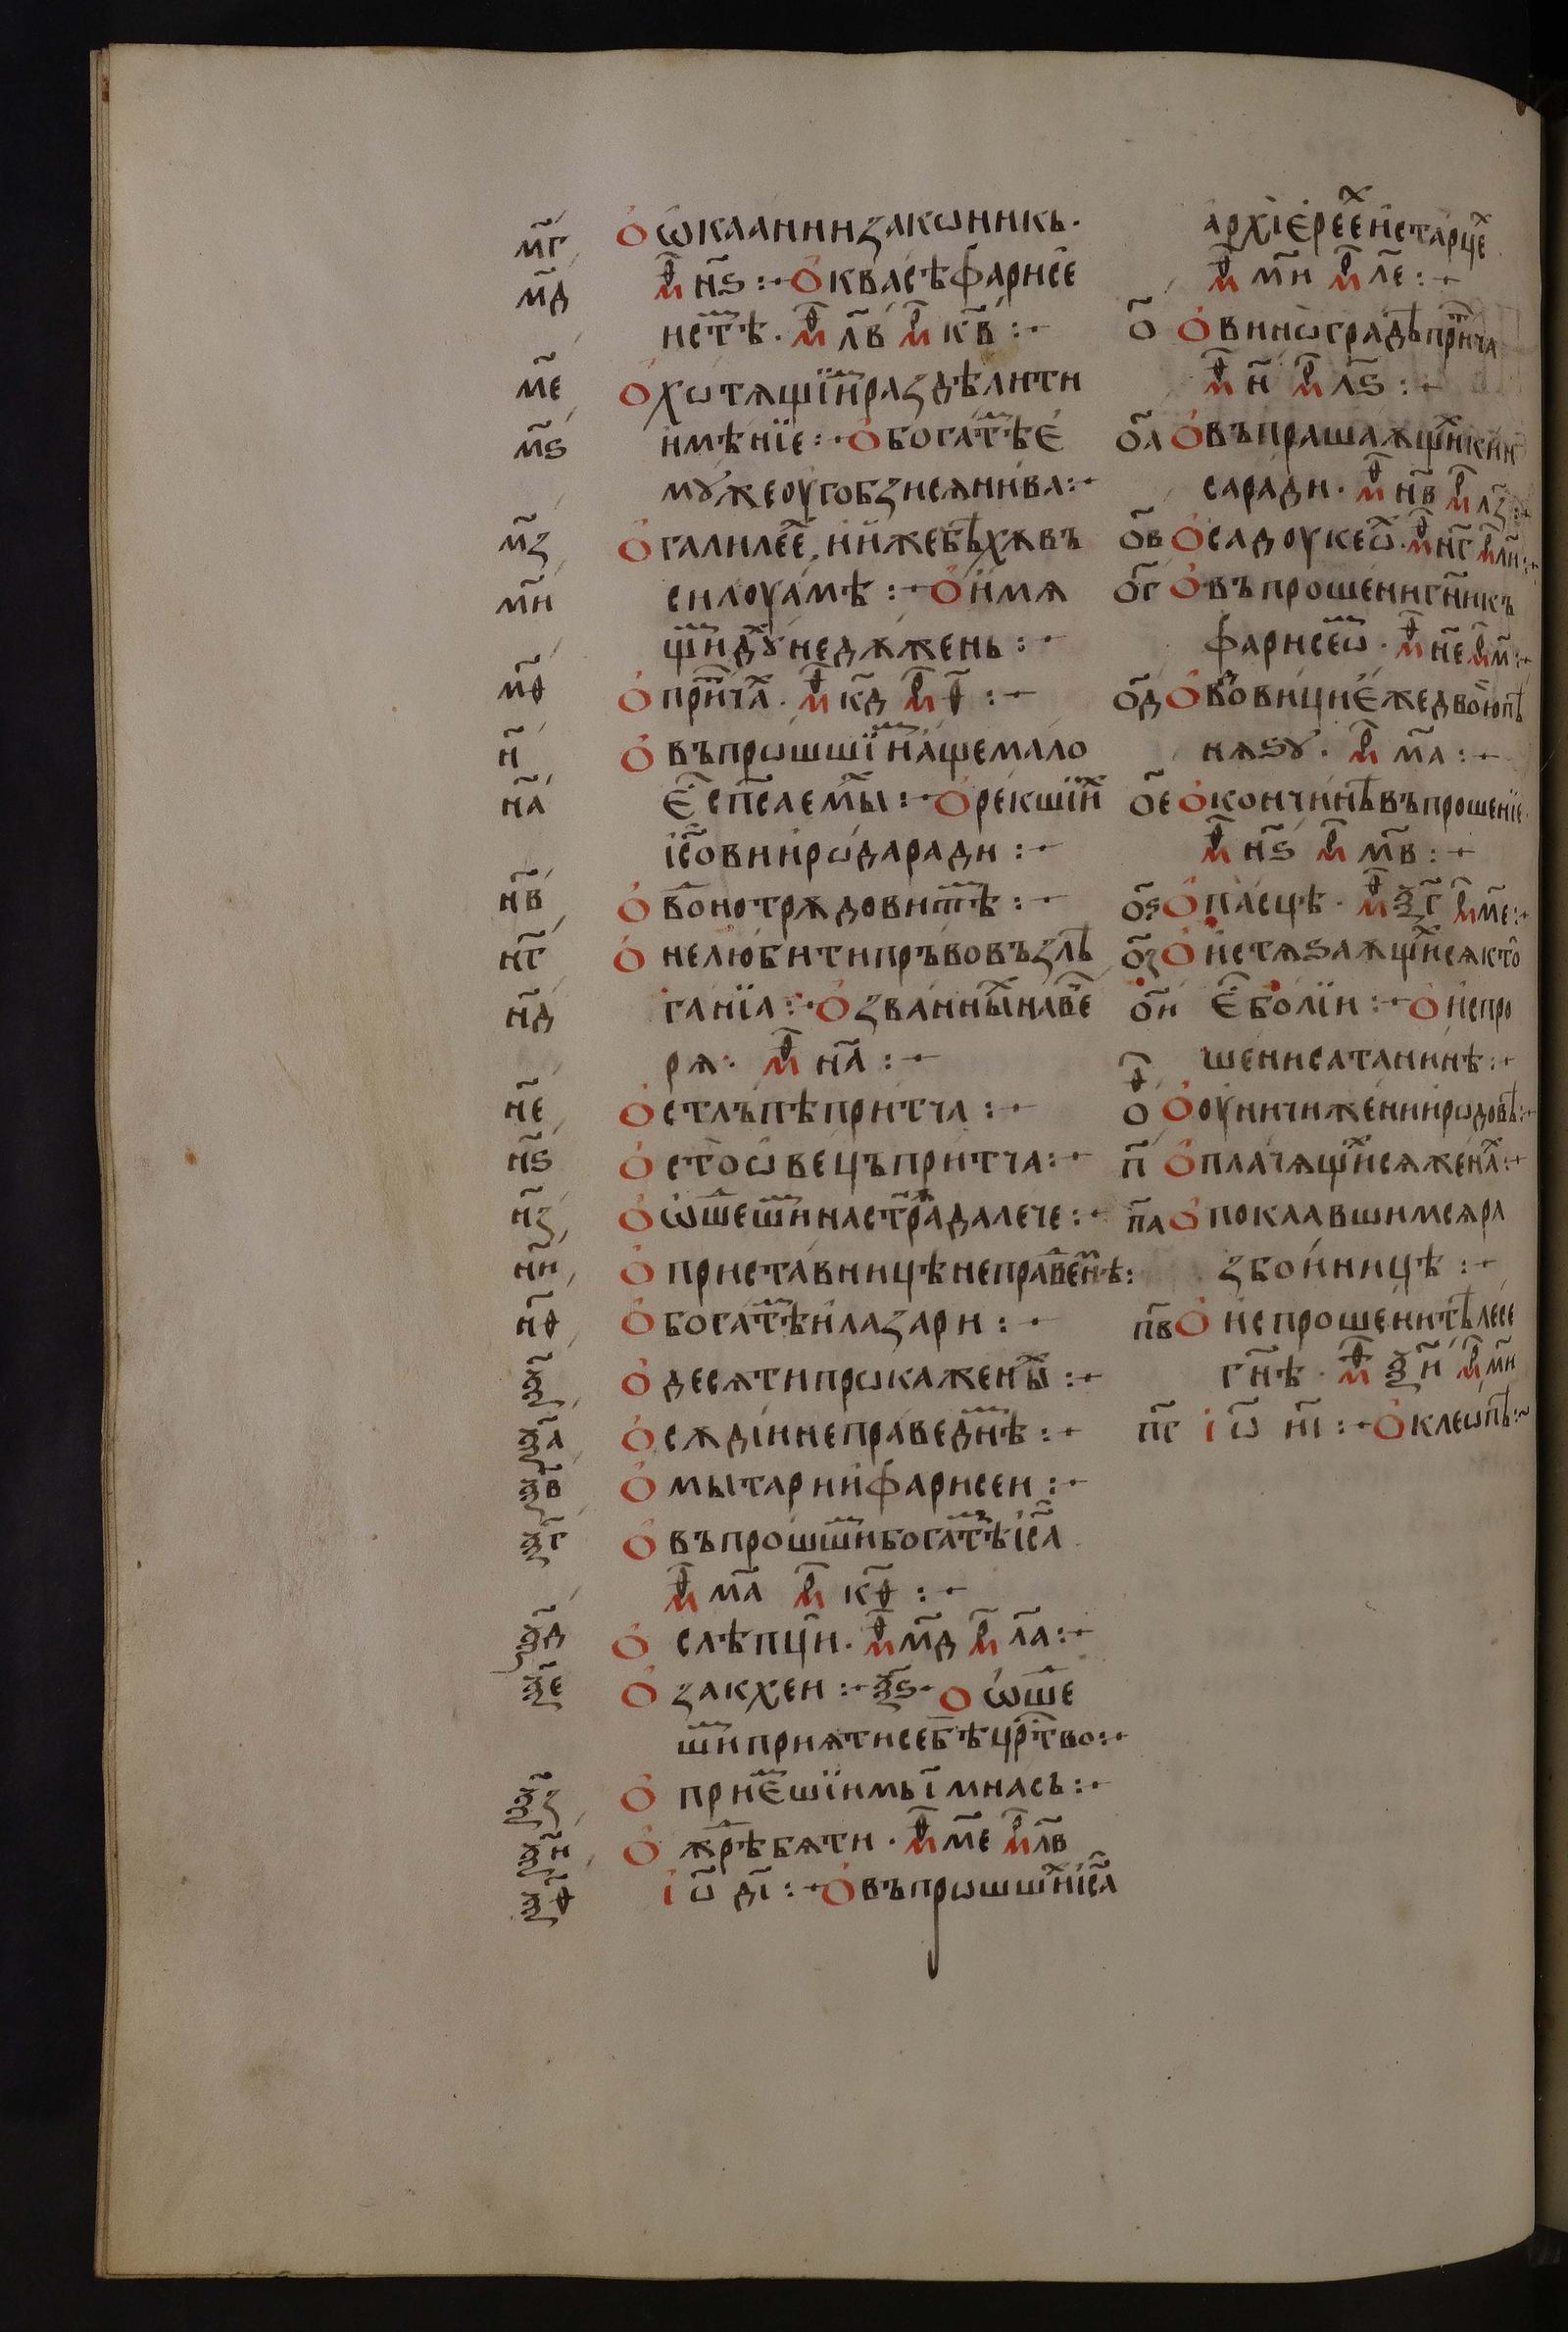 м҃г О ѡ҆каанїи законикь·
м҃д мѳ҃ н҃ѕ :· О квасѣ фарисе́
истѣⷨ· мѳ҃ л҃в мр҃ к҃в :·
м҃е О хотѧщїиⷨ раздѣлити
м҃ѕ имѣнїе :· О богатѣⷨ е҆
мꙋже оугобзисѧ нива :·
м҃з О галилееⷯ, и҆иже бѣхѫ въ
м҃н силоуамѣ :· О и҆мѧ
щиⷨ дх҃ъ недѫжень :·
м҃ѳ О притчаⷯ· мѳ҃ к҃д мр҃ ѳ҃ :·
н҃ О въпрѡшшїиⷨ аще мало
н҃а еⷭ҇ сп҃саемыⷯ :· О рекшїиⷯ
іс҃ови иродаради :·
н҃в О воⷣнотрѫдовитѣⷨ :·
н҃г О нелюбити пръвовъзлѣ
н҃д ганїа :· О званныⷯ на вече
рѧ· мѳ҃ н҃а :·
н҃е О стлъпѣ притча :·
н҃ѕ О сто̀ ѡвецъ притча :·
н҃з О ѿшеⷣшиⷨ на странѫ далече :·
н҃и О приставницѣ неправеⷣнѣⷨ :·
н҃ѳ О богатѣⷨ и҆ лазари :·
ѯ҃ О десѧти прокаженыⷯ :·
ѯ҃а О сѫдїи неправеднѣⷨ :·
ѯ҃в О мытари и҆ фарисеи :·
ѯ҃г О въпрошшиⷨ богатѣⷨ іс҃а
мѳ҃ м҃а мр҃ к҃ѳ :·
ѯ҃д О слѣпци· мѳ҃ м҃д мр҃ л҃а :·
ѯ҃е О закхеи :· ѯ҃ѕ· О ѿшеⷣ
шиⷨ приѧти себѣ црⷭ҇тво :·
ѯ҃з О приеⷨшїимь ı҃ мнась :·
ѯ҃и О жрѣбѧти· мѳ҃ м҃е мр҃ л҃в
ѯ҃ѳ іѡ҃ д҃ı :· О въпрѡшшиⷯ іс҃а
архїерееⷯ и҆ старцеⷯ
мѳ҃ м҃и мр҃ л҃е :·
о҃ О виноградѣ притча
мѳ҃ н҃ мр҃ л҃ѕ :·
о҃а О въпрашаѫщиⷯ кин
саради· мѳ҃ н҃в мр҃ л҃з :·
о҃в О садоукеѡⷯ· мѳ҃ н҃г мр҃ л҃и :·
о҃г О въпрошени гн҃и къ
фарисеѡⷨ· мѳ҃ н҃е мр҃ м҃ :·
о҃д О въдовици е҆же двою пѣ
нѧѕꙋ· мр҃ м҃а :·
о҃е О кончинѣ въпрошенїе·
мѳ҃ н҃ѕ мр҃ м҃в :·
о҃ѕ О пасцѣ· мѳ҃ ѯ҃г мр҃ м҃е :·
о҃з О истѧѕаѫщиⷯсѧ кто̀
о҃и еⷭ҇ болїи :· О испро
шени сатанинѣ :·
о҃ѳ О оуничижени иродовѣ :·
п҃ О плачѧщиⷯсѧ женаⷯ :·
п҃а О покаавшимсѧ ра
збойницѣ :·
п҃в О испрошени тѣлесе
гн҃ѣ· мѳ҃ ѯ҃и мр҃ м҃и
п҃г іѡ҃ н҃ı :· О клеѡпѣ :·